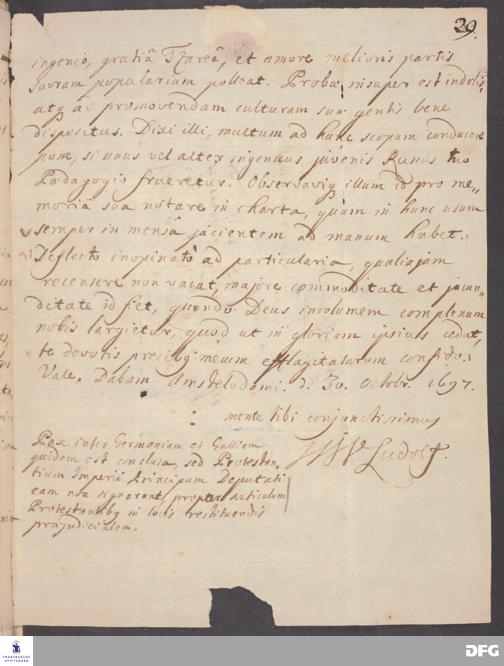 29.
ingenio, gratiâ Tzareâ, et amore melioris partis
suorum popularium polleat. Probæ insuper est indolis,
atq; ad promovendam culturam suæ gentis bene
dispositus. Dixi illi, multum ad hunc scopum conducere
posse, si unus vel alter ingenuus juvenis Russus tuo
Pædagogio frueretur. Observavi illum id pro me-
moria sua notare in charta, quam in hunc usum
semper in mensâ jacientem ad manum habet.
Deflecto inopinato ad particularia, qualia jam
recensere non vacat, majore commoditate et jucun-
ditate id fiet, quando Deus incolumem complexum
nobis largietur, quod ut in gloriam ipsius cedat,
te devotis precibq; mecum efflagitaturum confido.
Vale, Dabam Amstelodami. d. 30. Octobr. 1697.
mente tibi conjunctissimus
Ludolf.
Pax inter Germaniam et Galliam
quidem est conclusa, sed Protestan-
tium Imperii Principum Deputati
eam non signarant, propter Articulum
Protestantibq; in locis restituendis
præjudicialem.
FRANCKESCHE
STIFTUNGEN
DFG